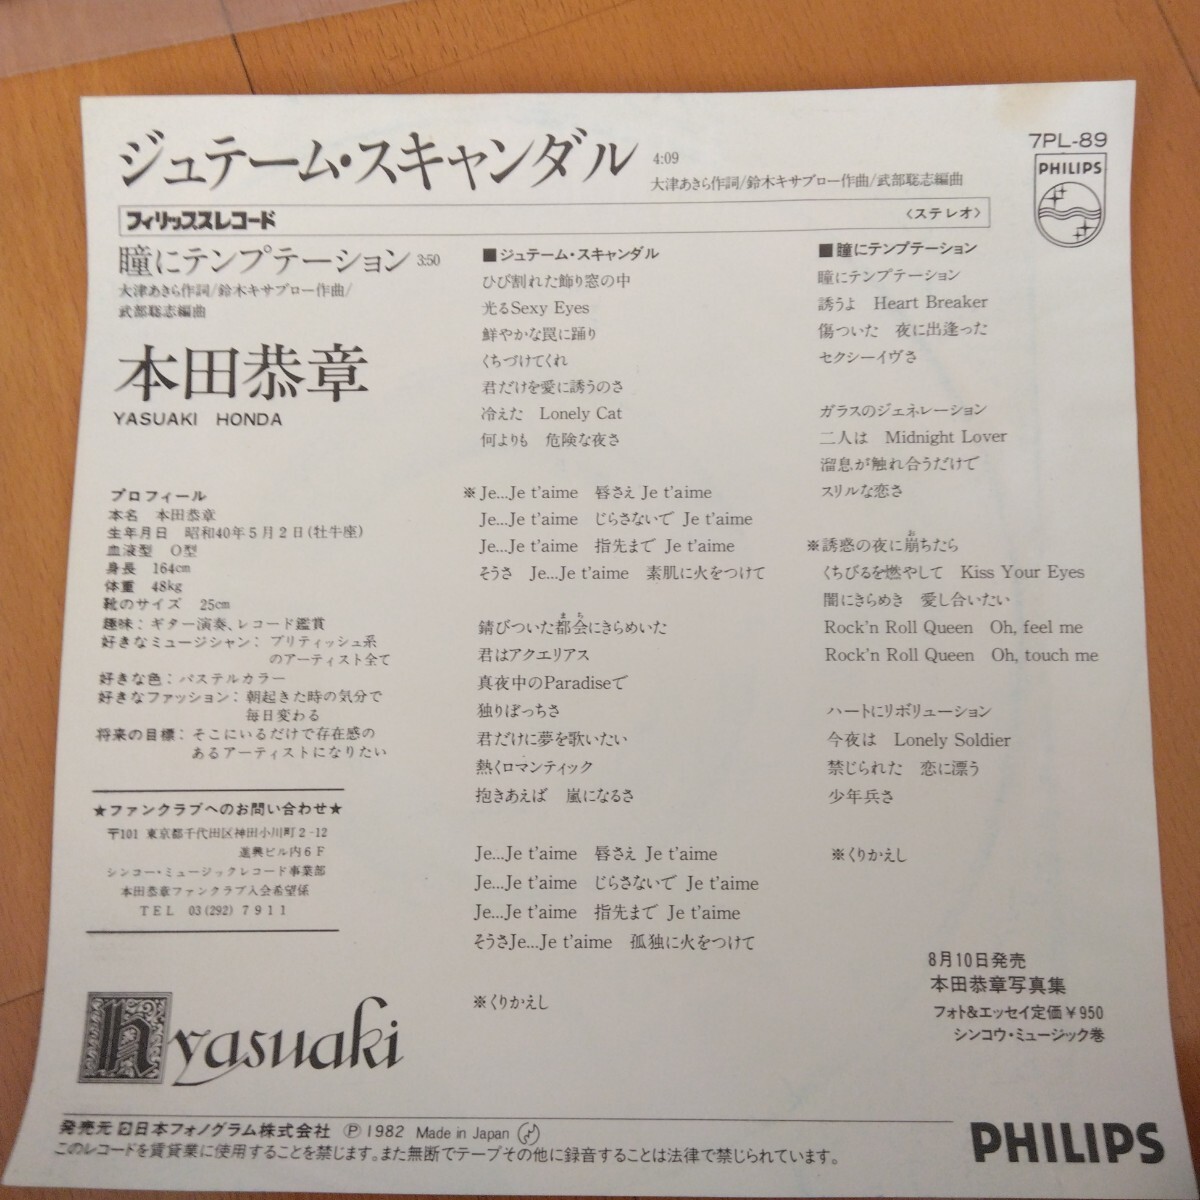 ジュテーム・スキャンダル 4:09
大津あきら作詞/鈴木キサブロー作曲/武部聡志編曲
7PL-89
PHILIPS
フィリップスレコード 〈ステレオ〉
瞳にテンプテーション 3:50
大津あきら作詞/鈴木キサブロー作曲/
武部聡志編曲
本田恭章
YASUAKI HONDA
プロフィール
本名 本田恭章
生年月日 昭和40年5月2日(牡牛座)
血液型 O型
身長 164cm
体重 48kg
靴のサイズ 25cm
趣味:ギター演奏、レコード鑑賞
好きなミュージシャン:ブリティッシュ系
のアーティスト全て
好きな色:パステルカラー
好きなファッション:朝起きた時の気分で
毎日変わる
将来の目標:そこにいるだけで存在感の
あるアーティストになりたい
★ファンクラブへのお問い合わせ★
〒101 東京都千代田区神田小川町2-12
進興ビル内6F
シンコー・ミュージックレコード事業部
本田恭章ファンクラブ入会希望係
TEL 03(292)7911
yasuaki
■ジュテーム・スキャンダル
ひび割れた飾り窓の中
光るSexy Eyes
鮮やかな罠に踊り
くちづけてくれ
君だけを愛に誘うのさ
冷えた Lonely Cat
何よりも 危険な夜さ
※Je...Je t'aime 唇さえ Je t'aime
Je...Je t'aime じらさないで Je t'aime
Je...Je t'aime 指先まで Je t'aime
そうさ Je...Je t'aime 素肌に火をつけて
まち
錆びついた都会にきらめいた
君はアクエリアス
真夜中のParadiseで
独りぼっちさ
君だけに夢を歌いたい
熱くロマンティック
抱きあえば 嵐になるさ
Je...Je t'aime 唇さえ Je t'aime
Je...Je t'aime じらさないで Je t'aime
Je...Je t'aime 指先まで Je t'aime
そうさJe...Je t'aime 孤独に火をつけて
※くりかえし
■瞳にテンプテーション
瞳にテンプテーション
誘うよ Heart Breaker
傷ついた 夜に出逢った
セクシーイヴさ
ガラスのジェネレーション
二人は Midnight Lover
溜息が触れ合うだけで
スリルな恋さ
お
※誘惑の夜に崩ちたら
くちびるを燃やして Kiss Your Eyes
闇にきらめき 愛し合いたい
Rock'n Roll Queen Oh, feel me
Rock'n Roll Queen Oh, touch me
ハートにリボリューション
今夜は Lonely Soldier
禁じられた 恋に漂う
少年兵さ
※くりかえし
8月10日発売
本田恭章写真集
フォト&エッセイ定価¥950
シンコウ・ミュージック巻
発売元 日本フォノグラム株式会社 Ⓟ1982 Made in Japan
このレコードを賃貸業に使用することを禁じます。また無断でテープその他に録音することは法律で禁じられています。
PHILIPS